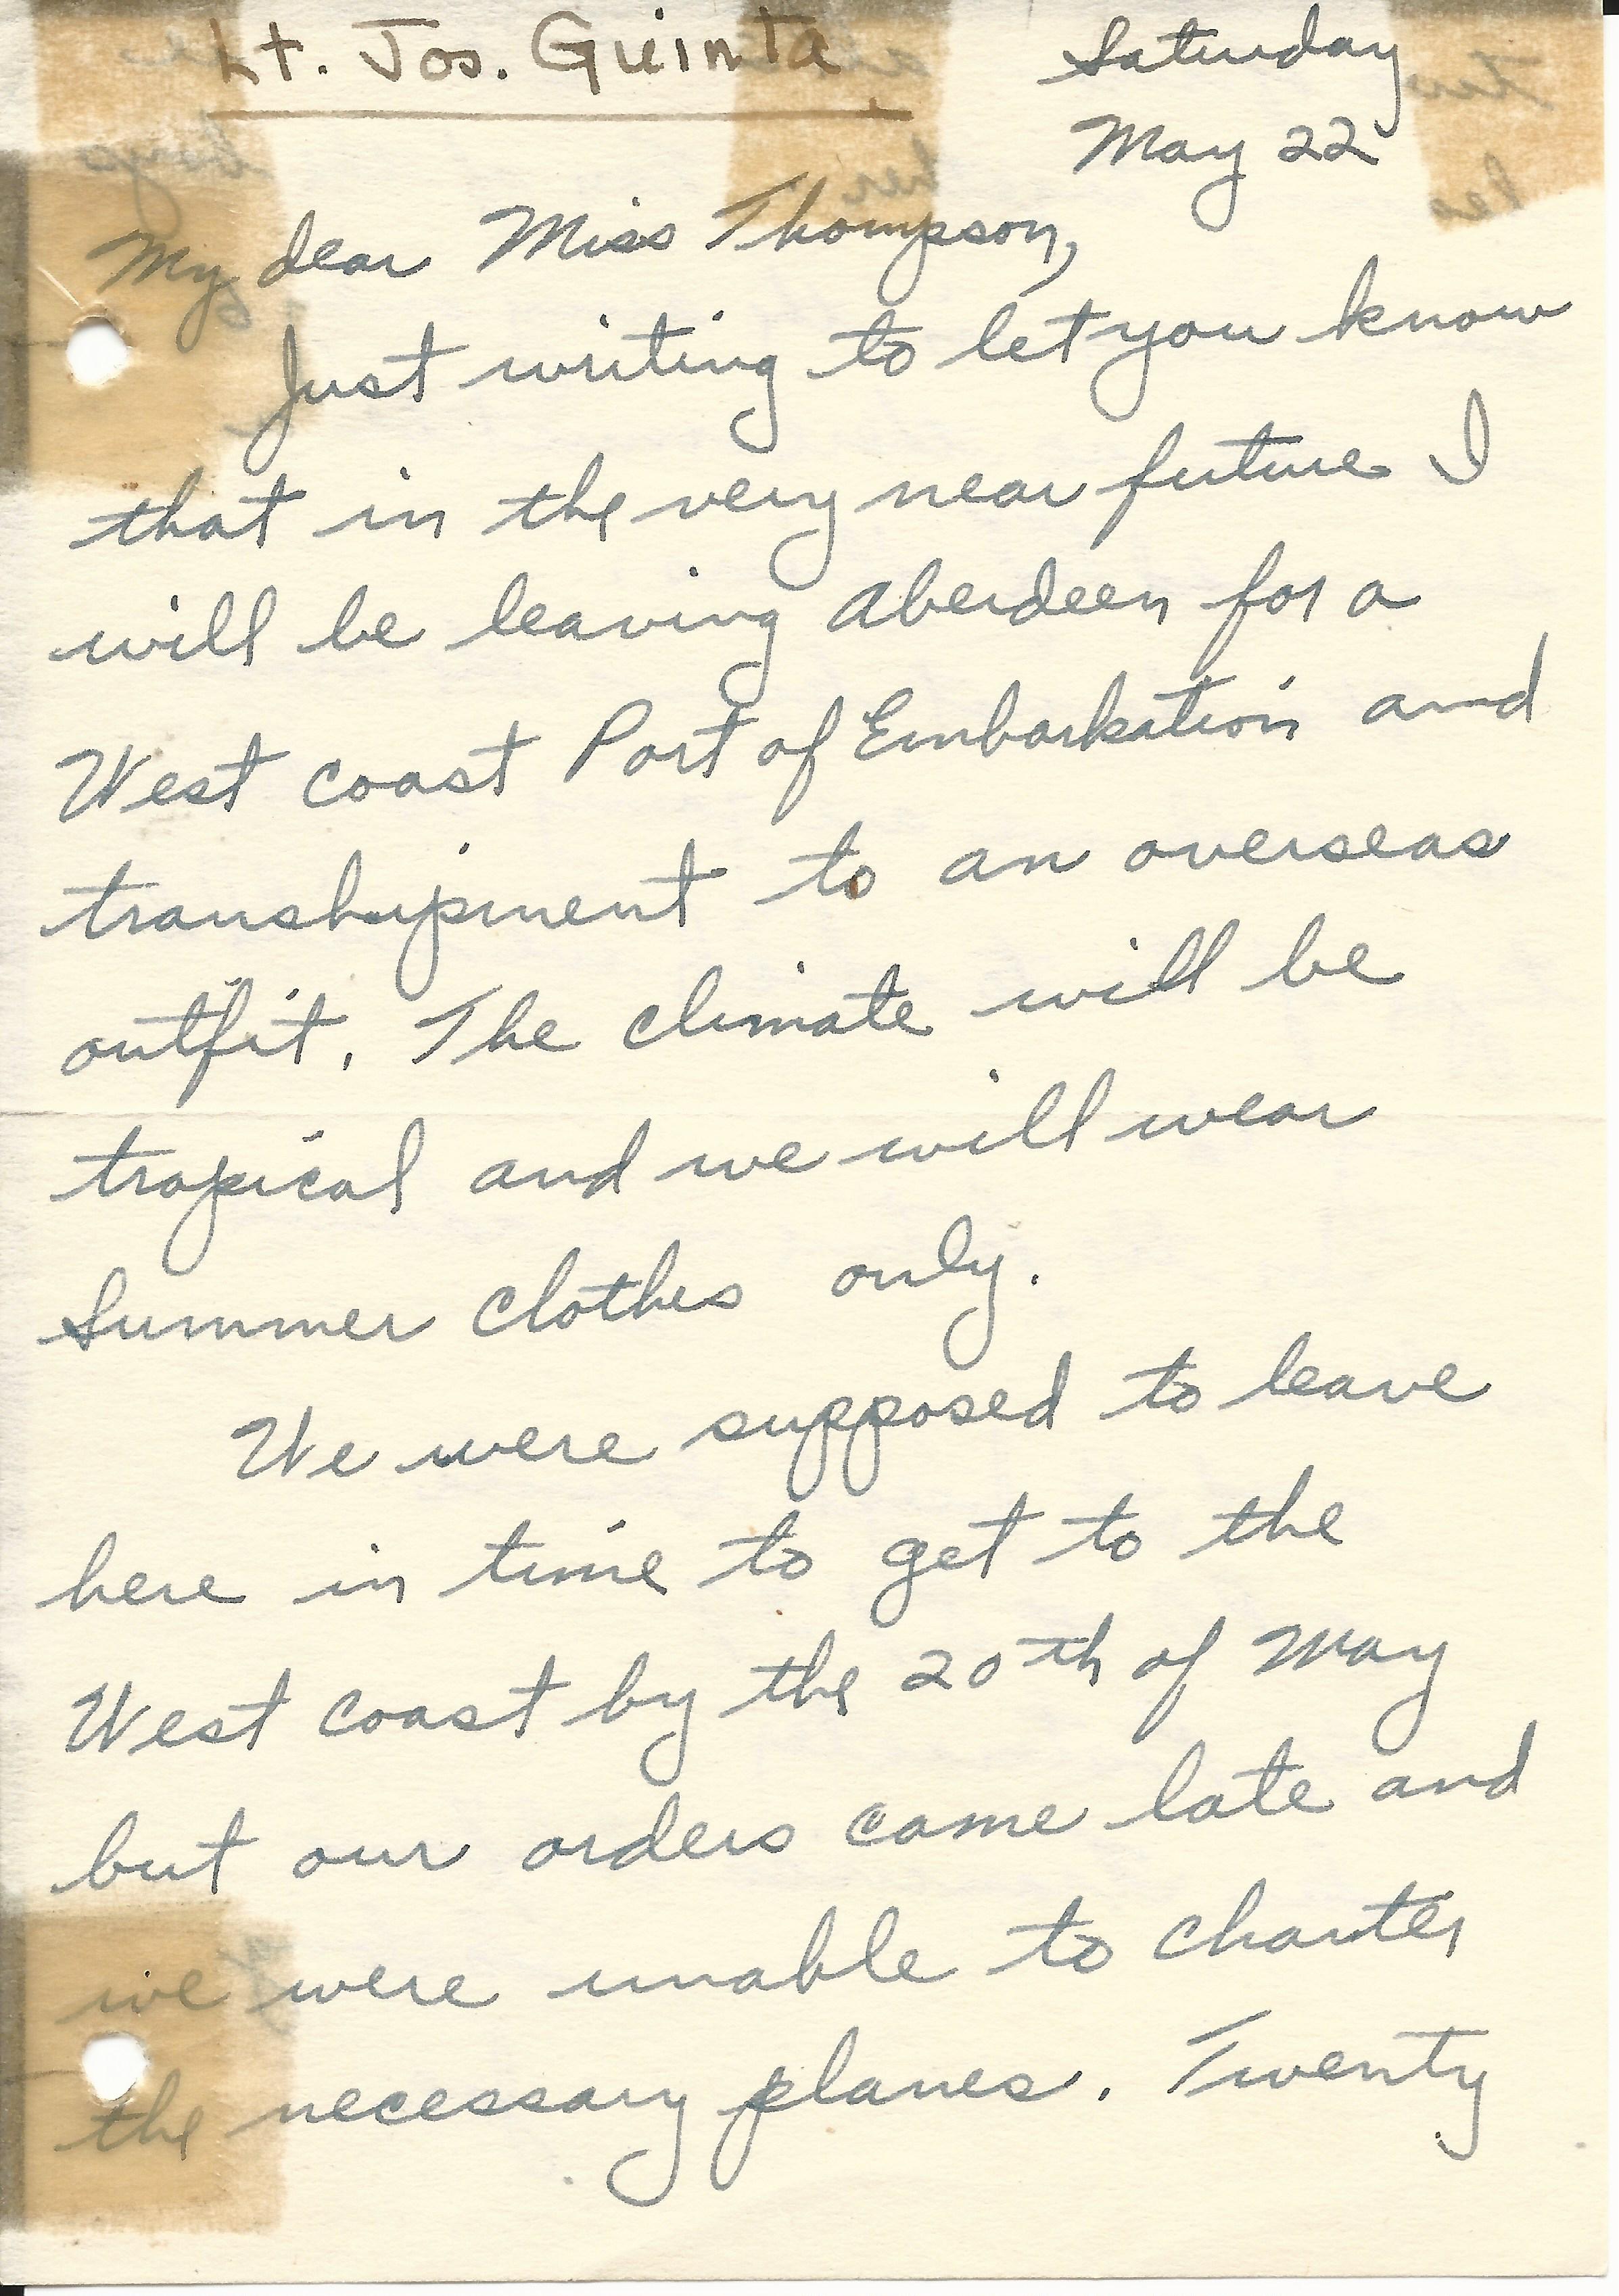 Lt. Jos. Guinta
Saturday
May 22
My dear Miss Thompson,
Just writing to let you know
that in the very near future I
will be leaving Aberdeen for a
West coast Port of Embarkation and
transhipment to an overseas
outfit. The climate will be
tropical and we will wear
Summer clothes only.
We were supposed to leave
here in time to get to the
West coast by the 20th of May
but our orders came late and
we were unable to charter
the necessary planes. Twenty